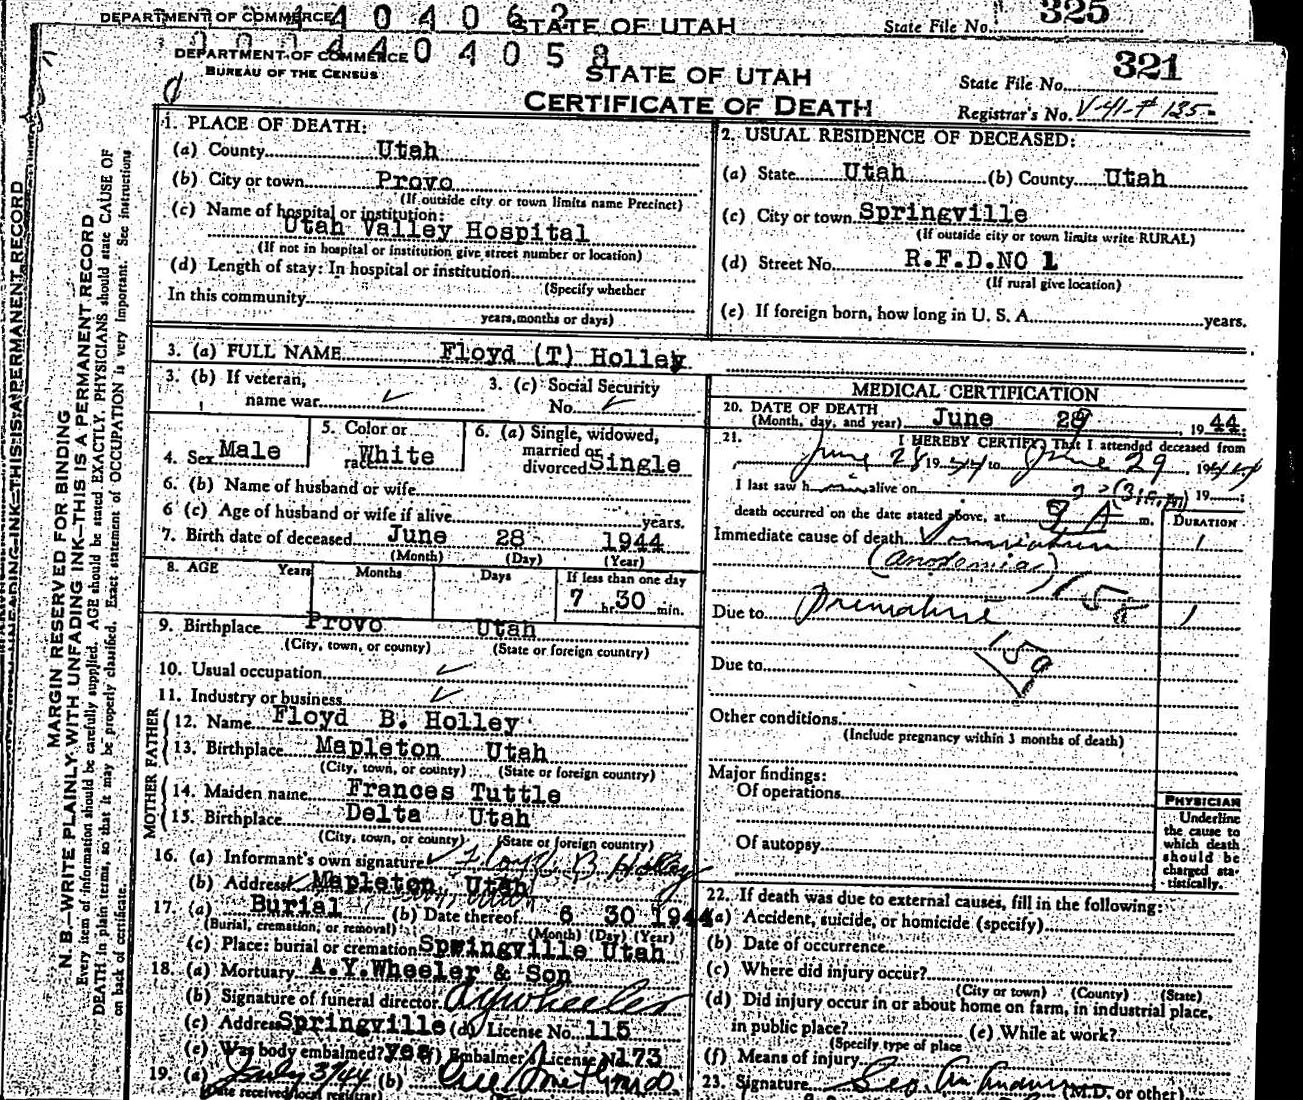 DEPARTMENT OF COMMERCE 1404062 STATE OF UTAH State File No. 325
1404058
DEPARTMENT OF COMMERCE
BUREAU OF THE CENSUS
STATE OF UTAH
CERTIFICATE OF DEATH
State File No. 321
Registrar's No. V-41-# 135
MARGIN RESERVED FOR BINDING
N. B.—WRITE PLAINLY WITH UNFADING INK—THIS IS A PERMANENT RECORD
Every item of information should be carefully supplied. AGE should be stated EXACTLY. PHYSICIANS should state CAUSE OF
DEATH in plain terms, so that it may be properly classified. Exact statement of OCCUPATION is very important. See instructions
on back of certificate.
1. PLACE OF DEATH:
(a) County Utah
(b) City or town Provo
(If outside city or town limits name Precinct)
(c) Name of hospital or institution:
Utah Valley Hospital
(If not in hospital or institution give street number or location)
(d) Length of stay: In hospital or institution
(Specify whether
In this community
years, months or days)
2. USUAL RESIDENCE OF DECEASED:
(a) State Utah (b) County Utah
(c) City or town Springville
(If outside city or town limits write RURAL)
(d) Street No. R.F.D.NO 1
(If rural give location)
(e) If foreign born, how long in U. S. A. years.
3. (a) FULL NAME Floyd (T) Holley
3. (b) If veteran, name war
3. (c) Social Security No.
4. Sex Male
5. Color or race White
6. (a) Single, widowed, married or divorced Single
6. (b) Name of husband or wife
6 (c) Age of husband or wife if alive years.
7. Birth date of deceased June 28 1944
(Month) (Day) (Year)
8. AGE Years Months Days If less than one day
7 hr. 30 min.
9. Birthplace Provo Utah
(City, town, or county) (State or foreign country)
10. Usual occupation
11. Industry or business
FATHER
12. Name Floyd B. Holley
13. Birthplace Mapleton Utah
(City, town, or county) (State or foreign country)
MOTHER
14. Maiden name Frances Tuttle
15. Birthplace Delta Utah
(City, town, or county) (State or foreign country)
16. (a) Informant's own signature Floyd B Holley
(b) Address Mapleton, Utah
17. (a) Burial (b) Date thereof 6 30 1944
(Burial, cremation, or removal) (Month) (Day) (Year)
(c) Place: burial or cremation Springville Utah
18. (a) Mortuary A.Y.Wheeler & Son
(b) Signature of funeral director AYWheeler
(c) Address Springville (d) License No. 115
(e) Was body embalmed? yes (f) Embalmer's License N 173
19. (a) July 3/44 (b)
Date received local registrar)
MEDICAL CERTIFICATION
20. DATE OF DEATH
(Month, day, and year) June 29 1944
21. I HEREBY CERTIFY, That I attended deceased from
June 28 1944 to June 29 1944
I last saw h alive on 19 ;
death occurred on the date stated above, at m.
DURATION
Immediate cause of death 1
Due to Premature 1
158
159
Due to
Other conditions
(Include pregnancy within 3 months of death)
Major findings:
Of operations
Of autopsy
PHYSICIAN
Underline
the cause to
which death
should be
charged sta-
tistically.
22. If death was due to external causes, fill in the following:
(a) Accident, suicide, or homicide (specify)
(b) Date of occurrence
(c) Where did injury occur?
(City or town) (County) (State)
(d) Did injury occur in or about home on farm, in industrial place,
in public place? (e) While at work?
(Specify type of place
(f) Means of injury
23. Signature Geo. (M.D. or other)